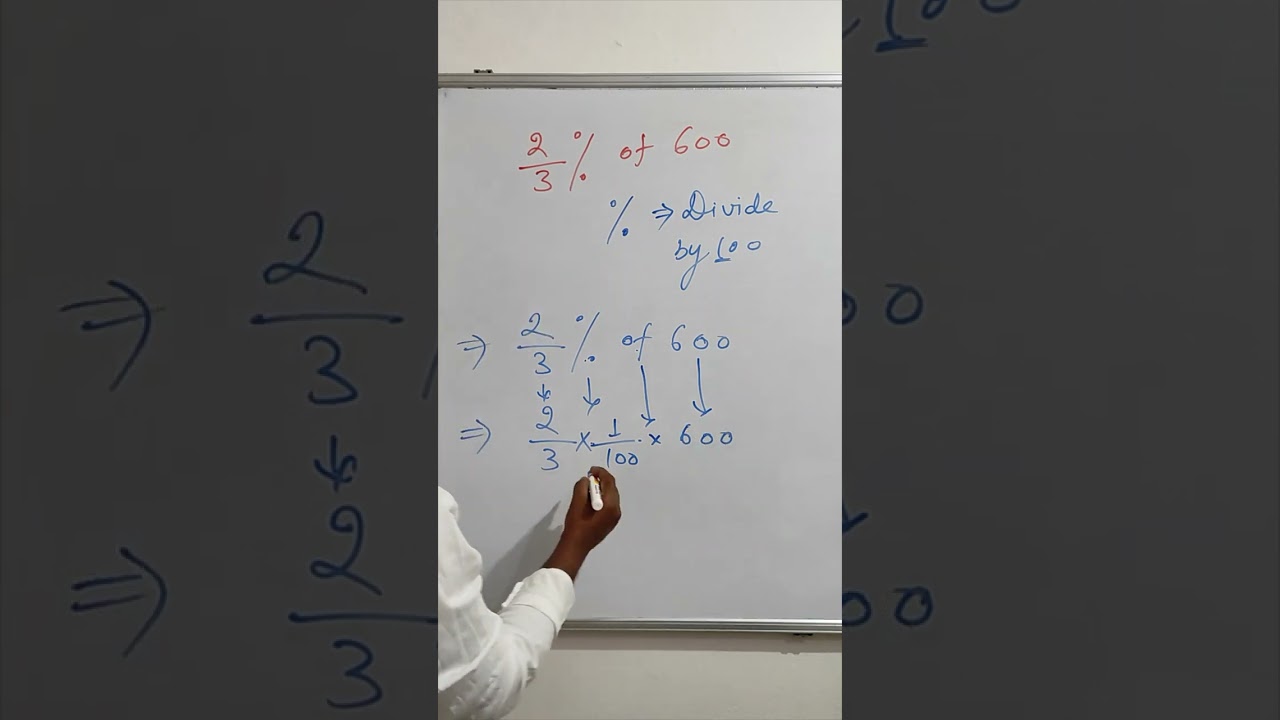 2/3 % of 600
% ⇒ Divide
by 100
⇒ 2/3 % of 600
⇒ 2/3 × 1/100 × 600